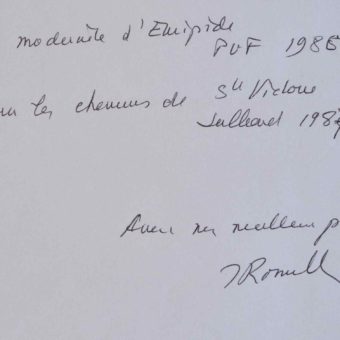 modernité d'Euripide
PUF 1986
les chemins de Ste Victoire
Julliard 1987
Avec mes meilleurs
JRomilly